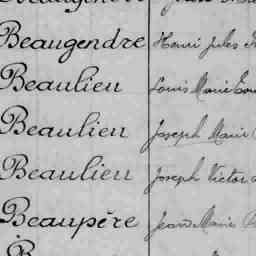 Beaugendre Henri Jules
Beaulieu Louis Marie
Beaulieu Joseph Marie
Beaulieu Joseph Victor
Beaupère Jean Marie